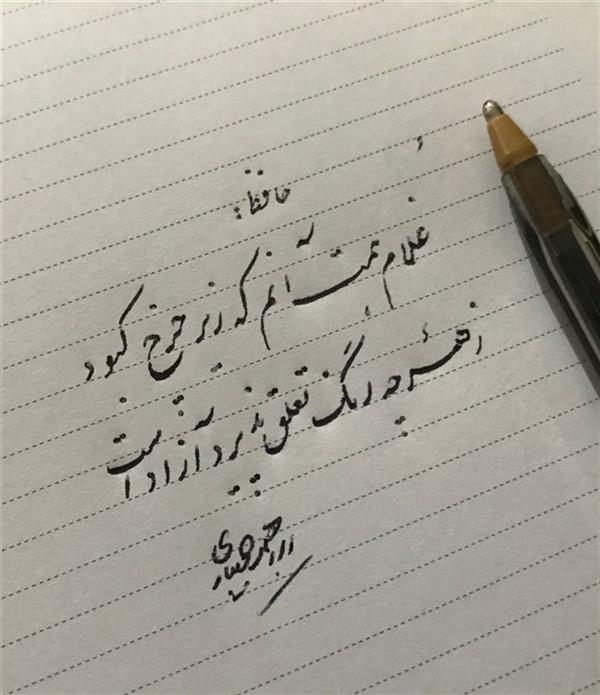 حافظ:
غلام همت آنم که زیر چرخ کبود
ز هر چه رنگ تعلق پذیرد آزاد است